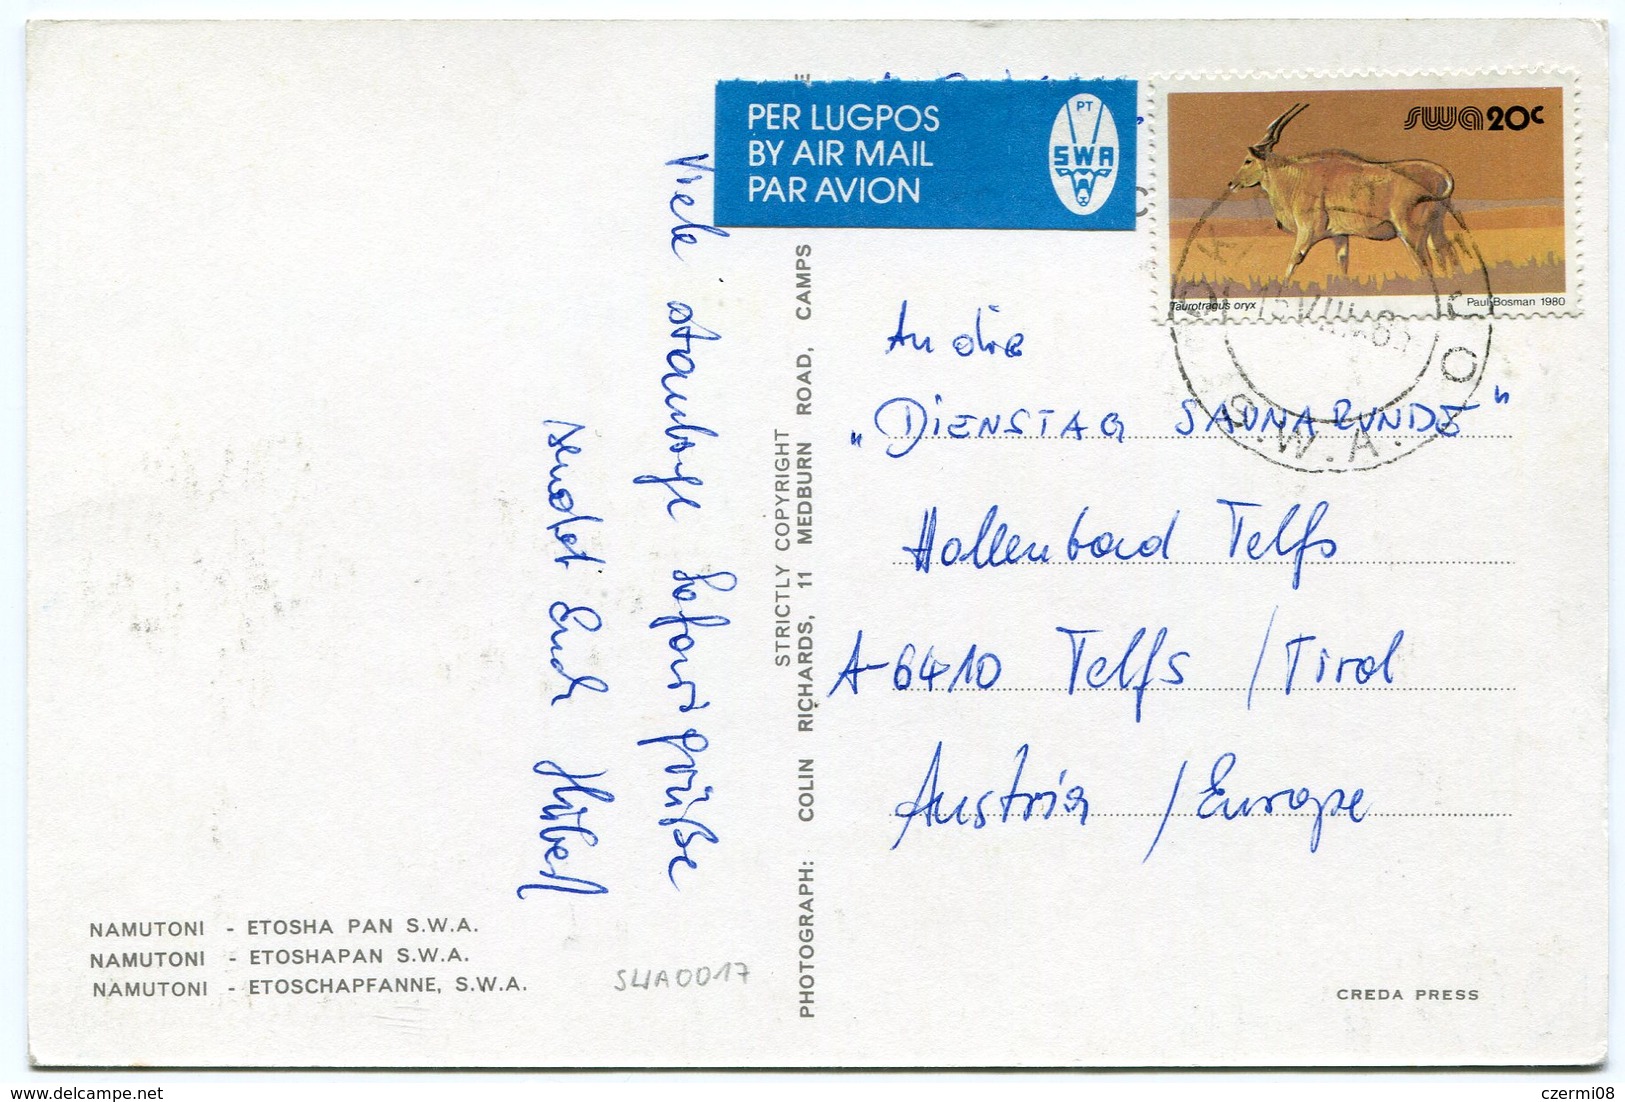 PER LUGPOS
BY AIR MAIL
PAR AVION
PT
SWA
swa 20c
Taurotragus oryx
Paul Bosman 1980
S.W.A.
Viele staubige Safarigrüße
sendet Euch
An die
„DIENSTAG SAUNARUNDE"
Hallenbad Telfs
A-6410 Telfs / Tirol
Austria / Europe
STRICTLY COPYRIGHT
PHOTOGRAPH: COLIN RICHARDS, 11 MEDBURN ROAD, CAMPS
NAMUTONI - ETOSHA PAN S.W.A.
NAMUTONI - ETOSHAPAN S.W.A.
NAMUTONI - ETOSCHAPFANNE, S.W.A.
SWA0017
CREDA PRESS
czermi08